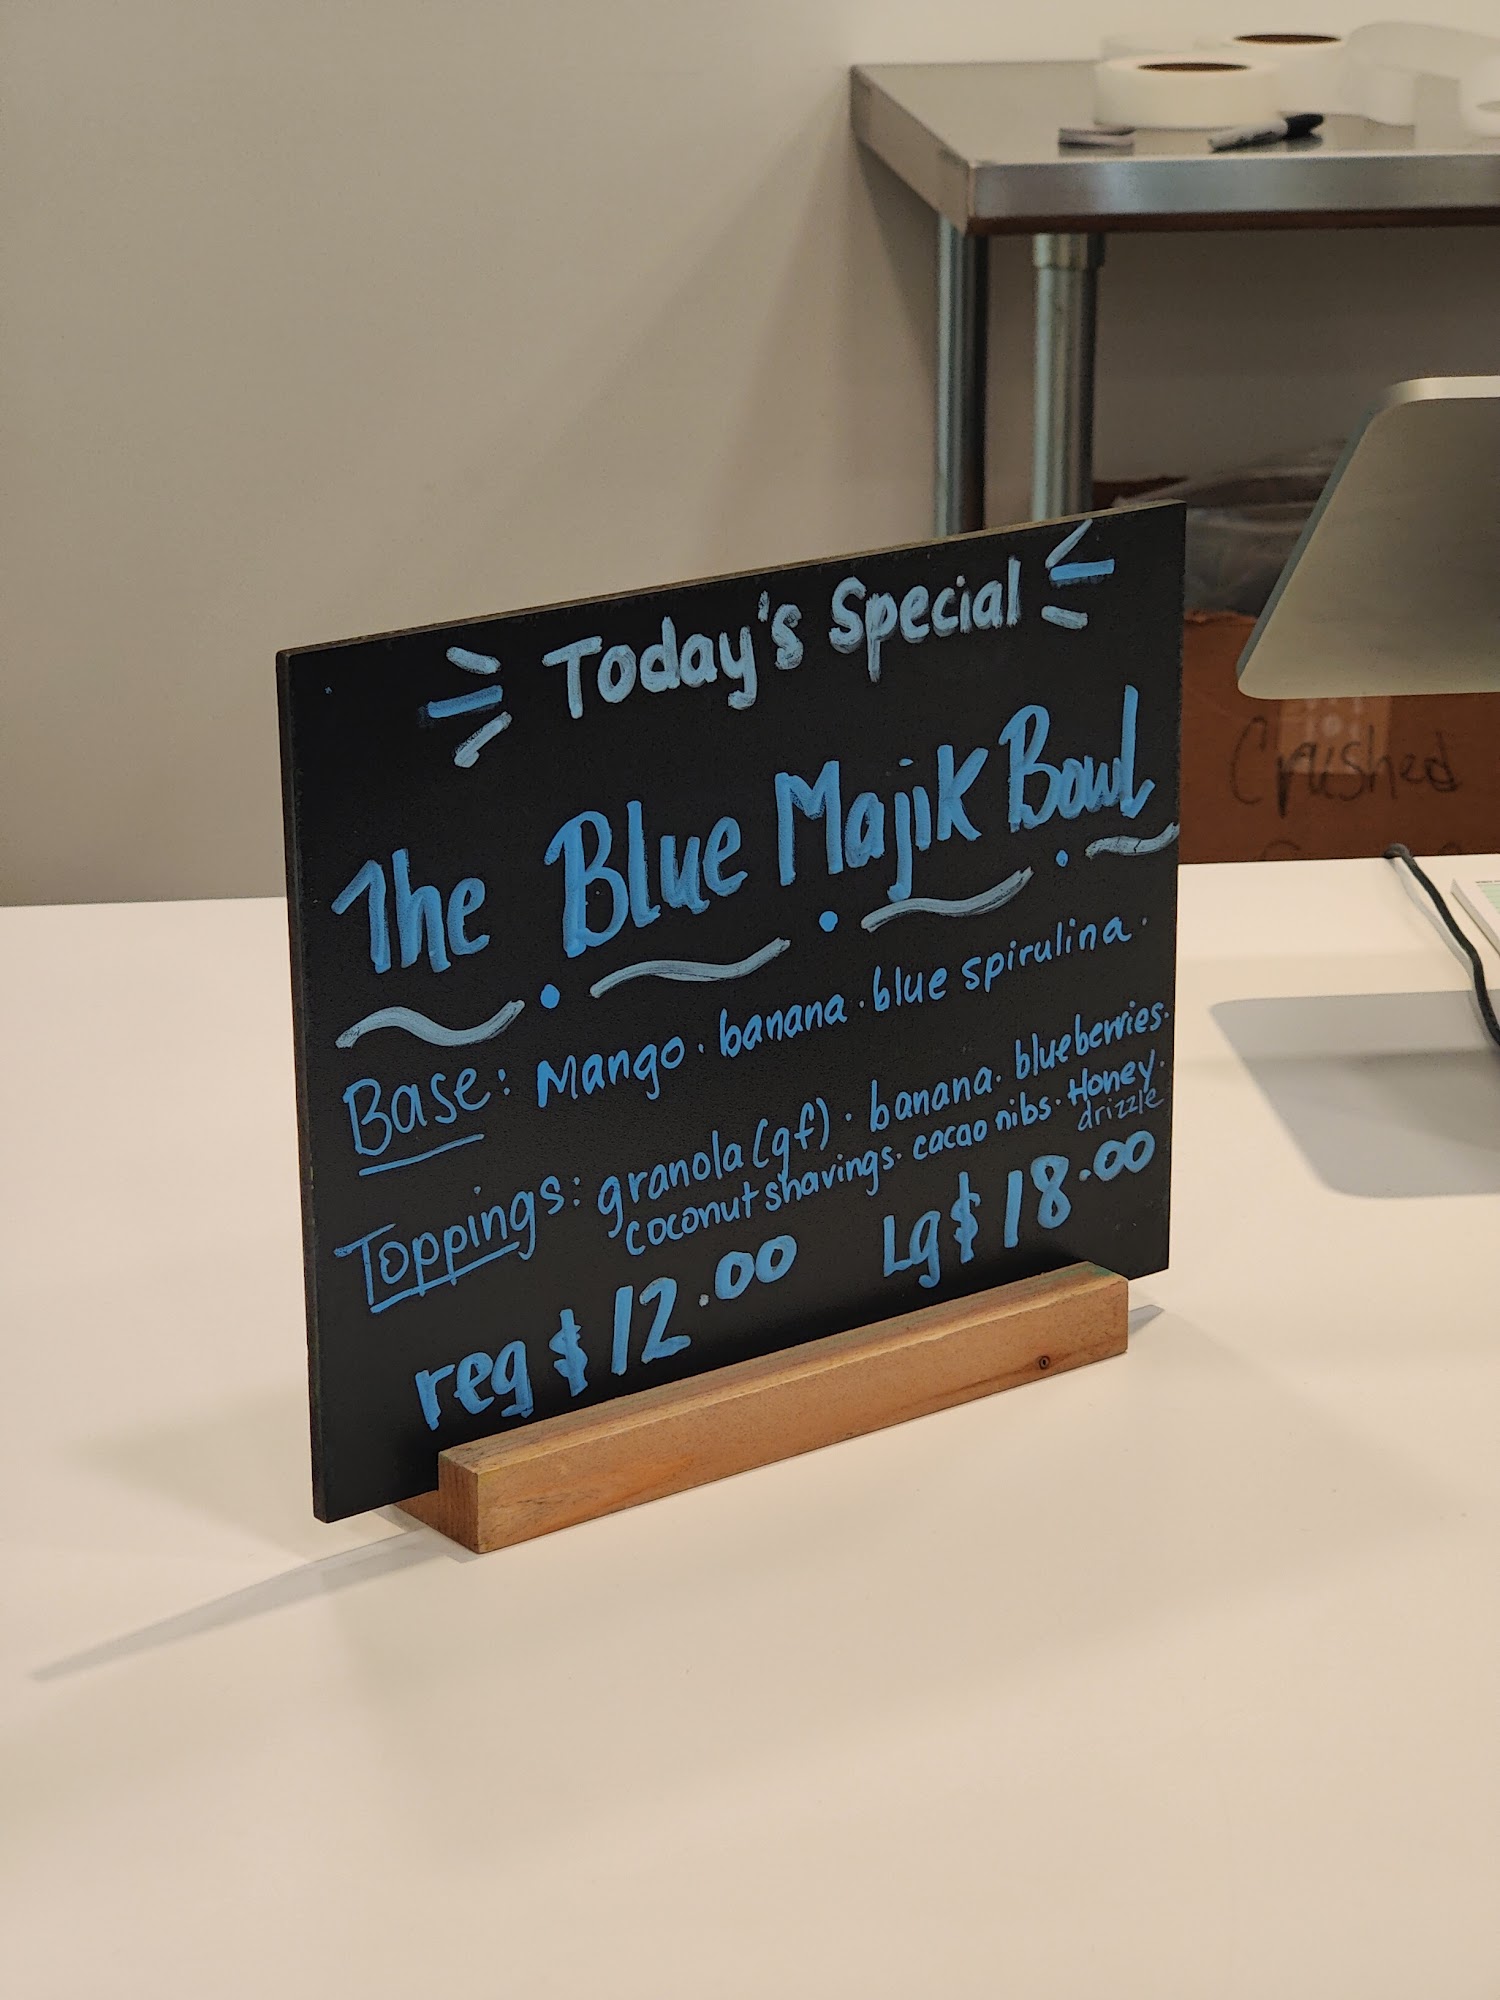 Today's Special
The Blue Majik Bowl
Base: Mango · banana · blue spirulina ·
Toppings: granola (gf) · banana · blueberries ·
coconut shavings · cacao nibs · Honey ·
drizzle
reg $12.00 Lg $18.00
Crushed